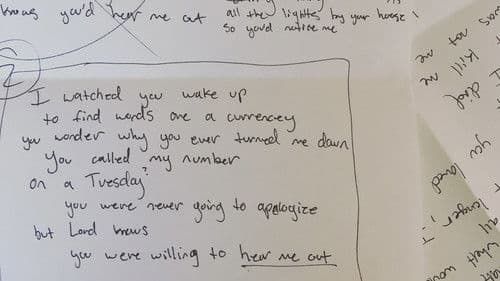 knows you'd hear me out
all the lights by your house
so you'd notice me
I watched you wake up
to find words are a currencey
you wonder why you ever turned me down
You called my number
on a Tuesday?
you were never going to apologize
but Lord knows
you were willing to hear me out
not me
kill me
I died
you
loved
longer
I
all